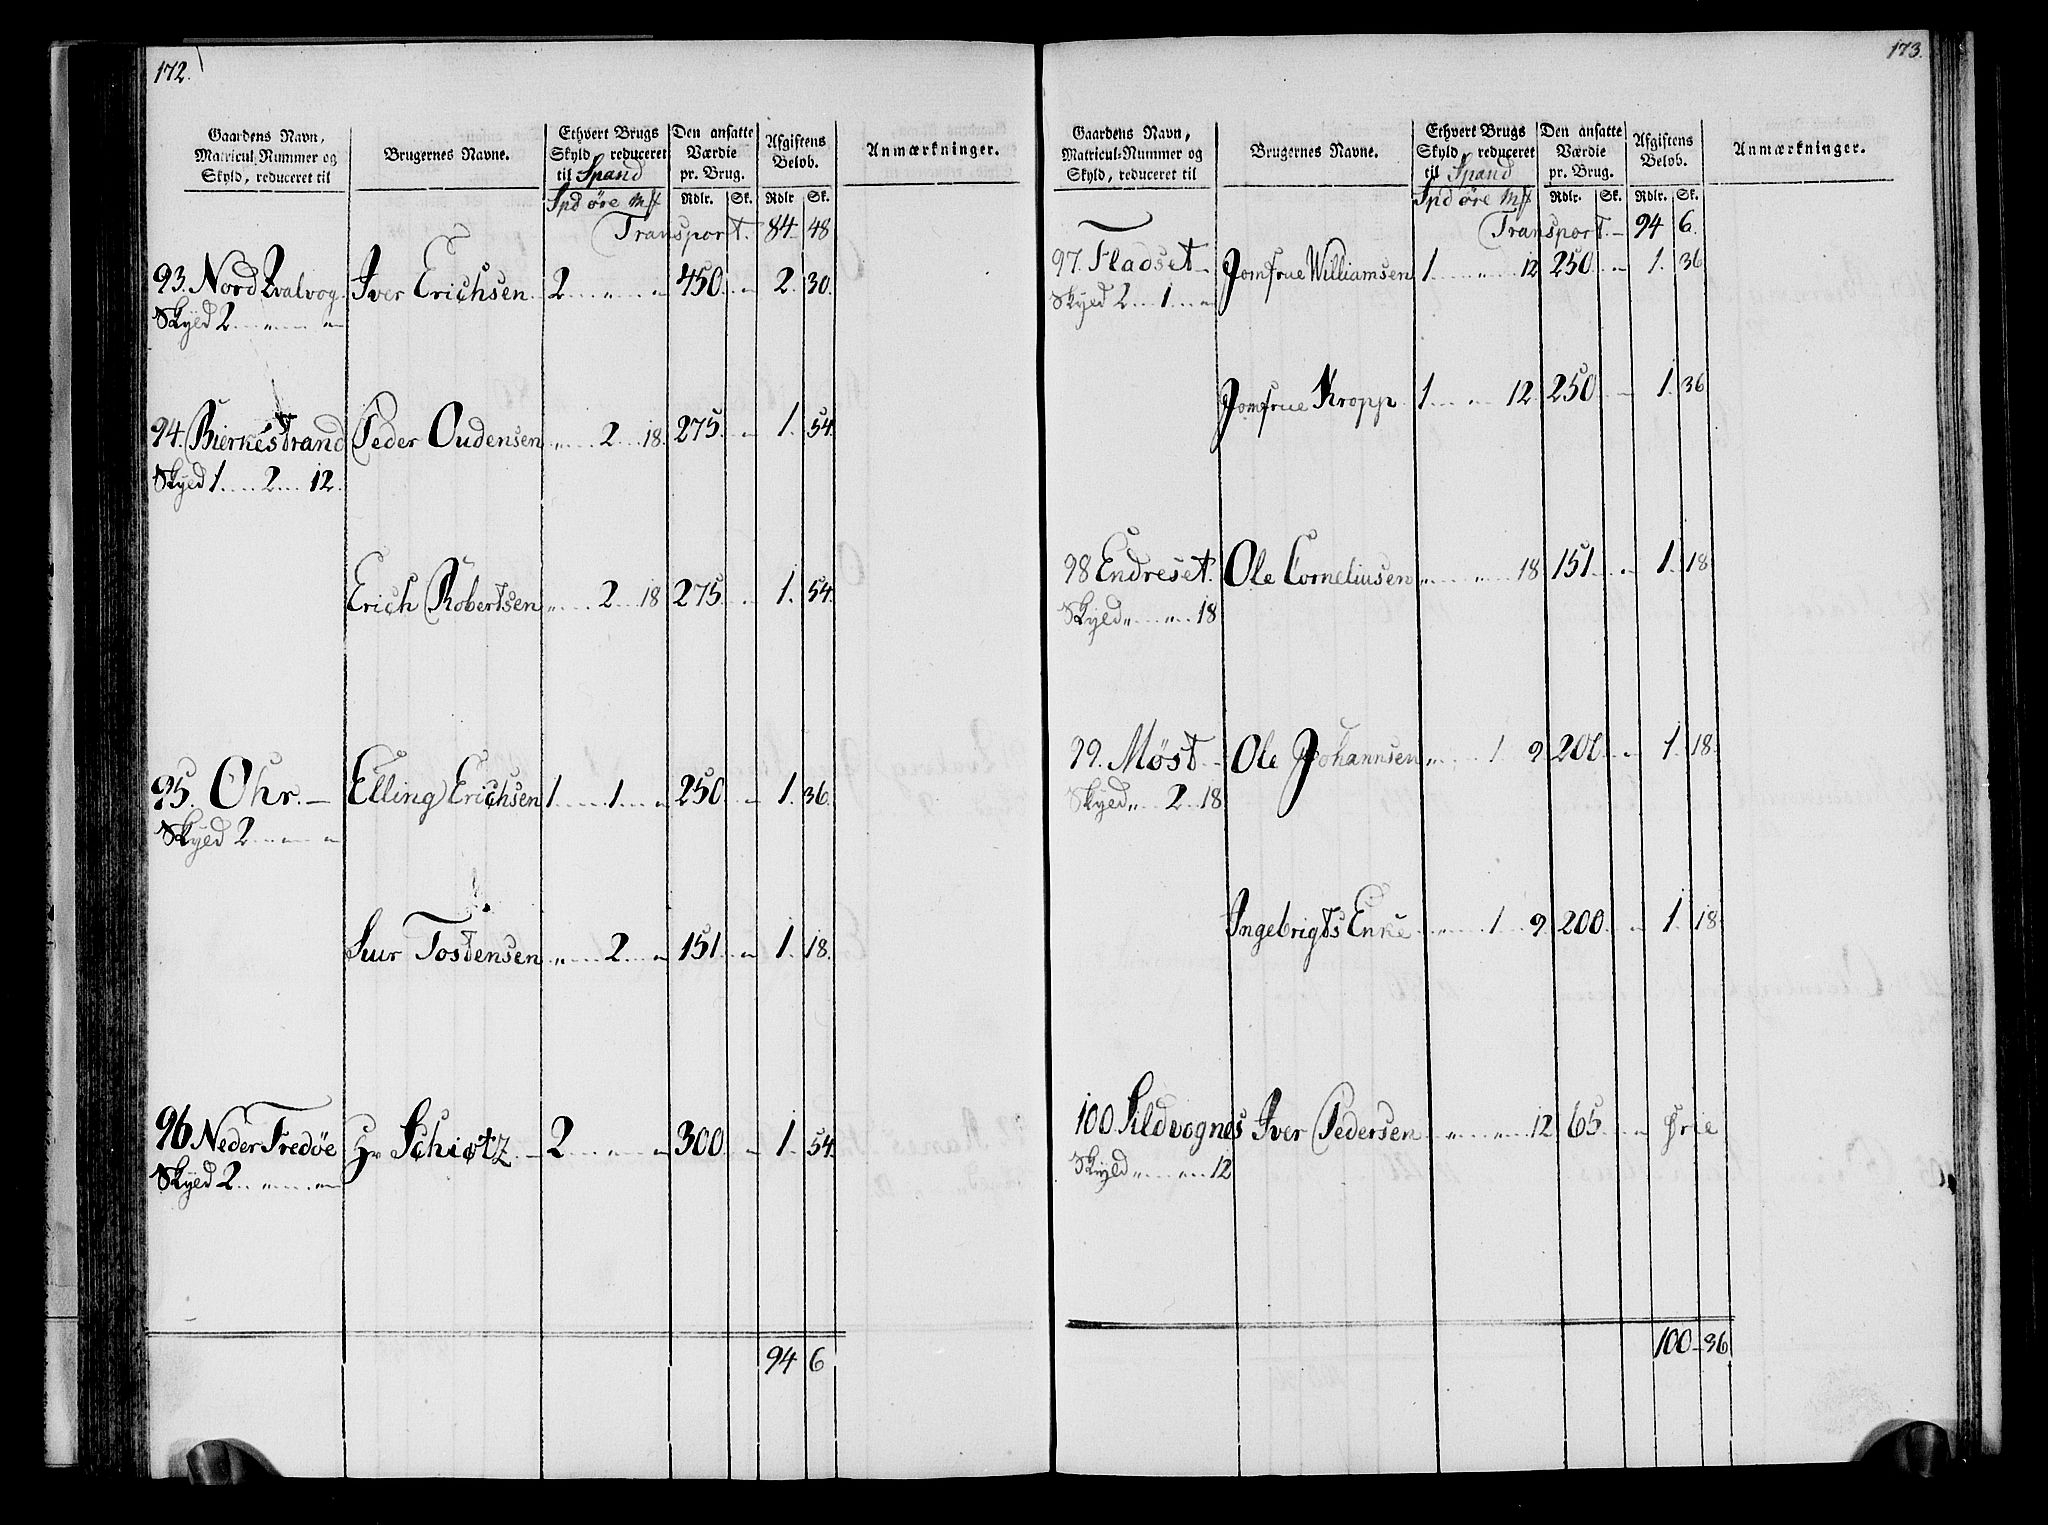 172.
Gaardens Navn, Matricul-Nummer og Skyld, reduceret til
Brugernes Navne.
Ethvert Brugs Skyld reduceret til Spand
Den ansatte Værdie pr. Brug.
Afgiftens Beløb.
Anmærkninger.
Spd øre Mk Rdlr. Sk. Rdlr Sk.
Transport. 84 48
93. Nord Qvalvog. Iver Erichsen. 2 " " 450 " 2. 30.
Skyld 2 " "
94. Bierkestrand Peder Oudensen " 2 18. 275. " 1. 54.
Skyld 1 2 12.
Erich Robertsen " 2 18 275 " 1. 54.
95. Ohr. Elling Erichsen 1 1 " 250 " 1. 36.
Skyld 2 " "
Siur Tostensen " 2 " 151 " 1. 18.
96. Neder Fredøe Hr Schiøtz. 2 " " 300 " 1. 54.
Skyld 2 " "
94 6
173.
Gaardens Navn, Matricul-Nummer og Skyld, reduceret til
Brugernes Navne.
Ethvert Brugs Skyld reduceret til Spand
Den ansatte Værdie pr. Brug.
Afgiftens Beløb.
Anmærkninger.
Spd øre Mk Rdlr. Sk. Rdlr. Sk.
Transport. 94 6.
97. Fladset Jomfrue Williamsen 1 " 12 250 " 1. 36
Skyld 2 1 "
Jomfrue Kropp. 1 " 12. 250 " 1. 36
98 Endreset. Ole Corneliusen " " 18 151 " 1. 18
Skyld " " 18
99. Møst Ole Johannsen " 1 9 200 " 1. 18
Skyld " 2 18
Ingebrigts Enke " 1 9 200 " 1. 18
100 Sildvognes Iver Pedersen " " 12 65 " frie
Skyld " " 12
100 36